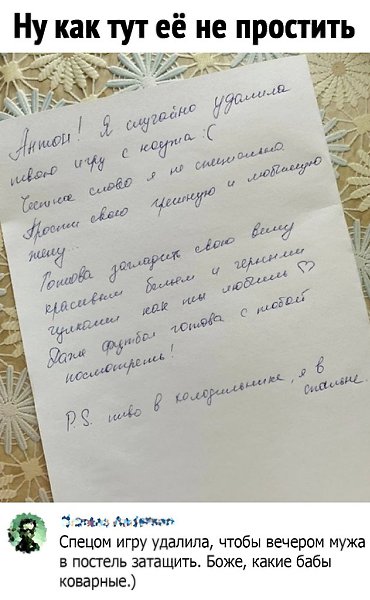 Ну как тут её не простить
Антон! Я случайно удалила
твою игру с ноута :(
Честное слово я не специально.
Прости свою грешную и любимую
жену...
Готова загладить свою вину
красивым бельём и чёрными
чулками как ты любишь ♡
Даже футбол готова с тобой
посмотреть!
P.S. пиво в холодильнике, я в
спальне.
Спецом игру удалила, чтобы вечером мужа
в постель затащить. Боже, какие бабы
коварные.)